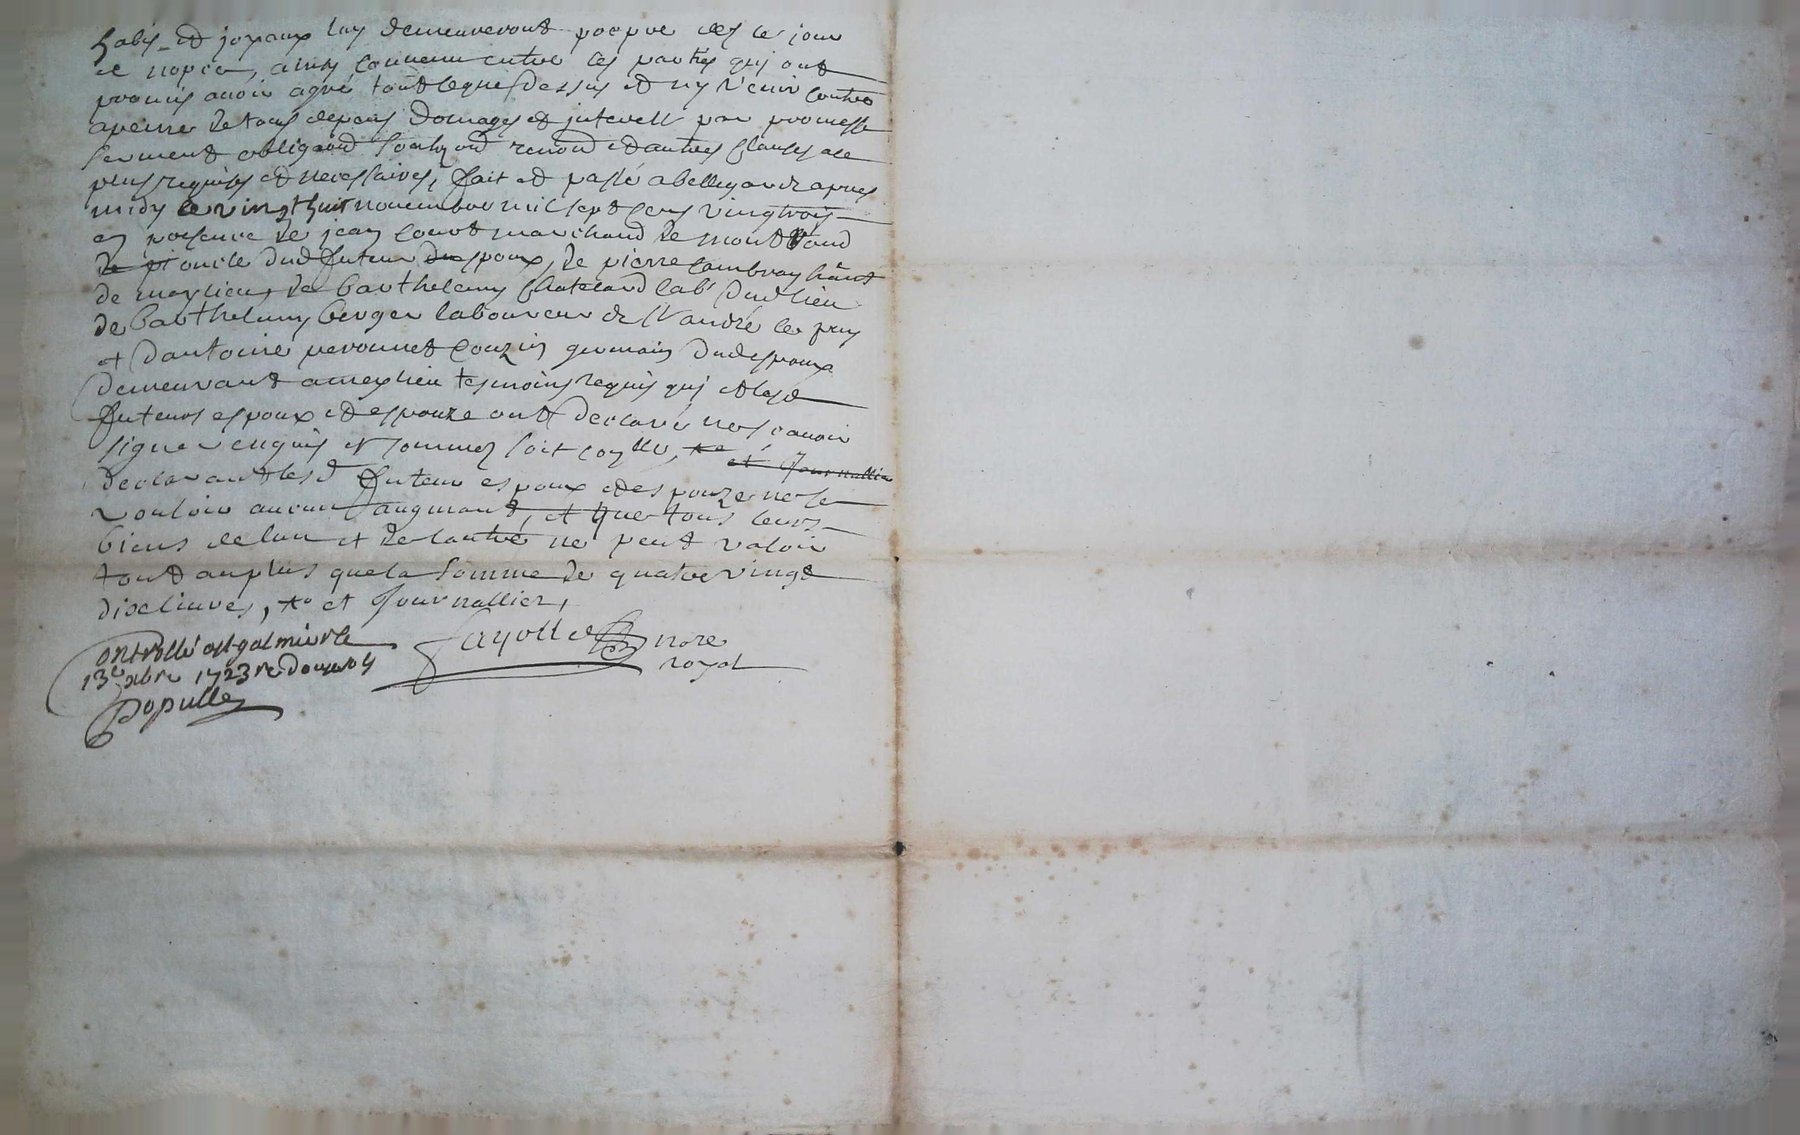 habis et joyaux luy demeureront propre des le jour
de nopce, ainsy convenu entre les parties quy ont
promis avoir agreé tout leque dessus et ny venir contre
apeine de tous depens domages et interest par promesse
serment obligaõn renonõn et autres clauses ace
plus requises et necessaires, fait et passé a bellegarde apres
midy le vingt huit novembre mil sept cens vingt trois
en presence de jean marchand de
oncle dud futeur espoux, de pierre
de de barthelemy labr dud lieu
de barthelemy berger laboureur de St andré le puy
et dantoine peronnet couzin germain dud espoux
demeurant ameylieu tesmoins requis quy et lesd
futeurs espoux et espouze ont declaré ne scavoir
signer enquis et sommez soit coñlle, et journallier
declarant lesd futeur espoux et espouze ne se
vouloir aucun augmant, et que tous leurs
biens de lun et de lautre ne peut valoir
tout au plus que la somme de quatre vingt
dix livres, et journallier,
Fayolle nore
royal
Controllé a St galmier le
13e xbre 1723 re
Populle